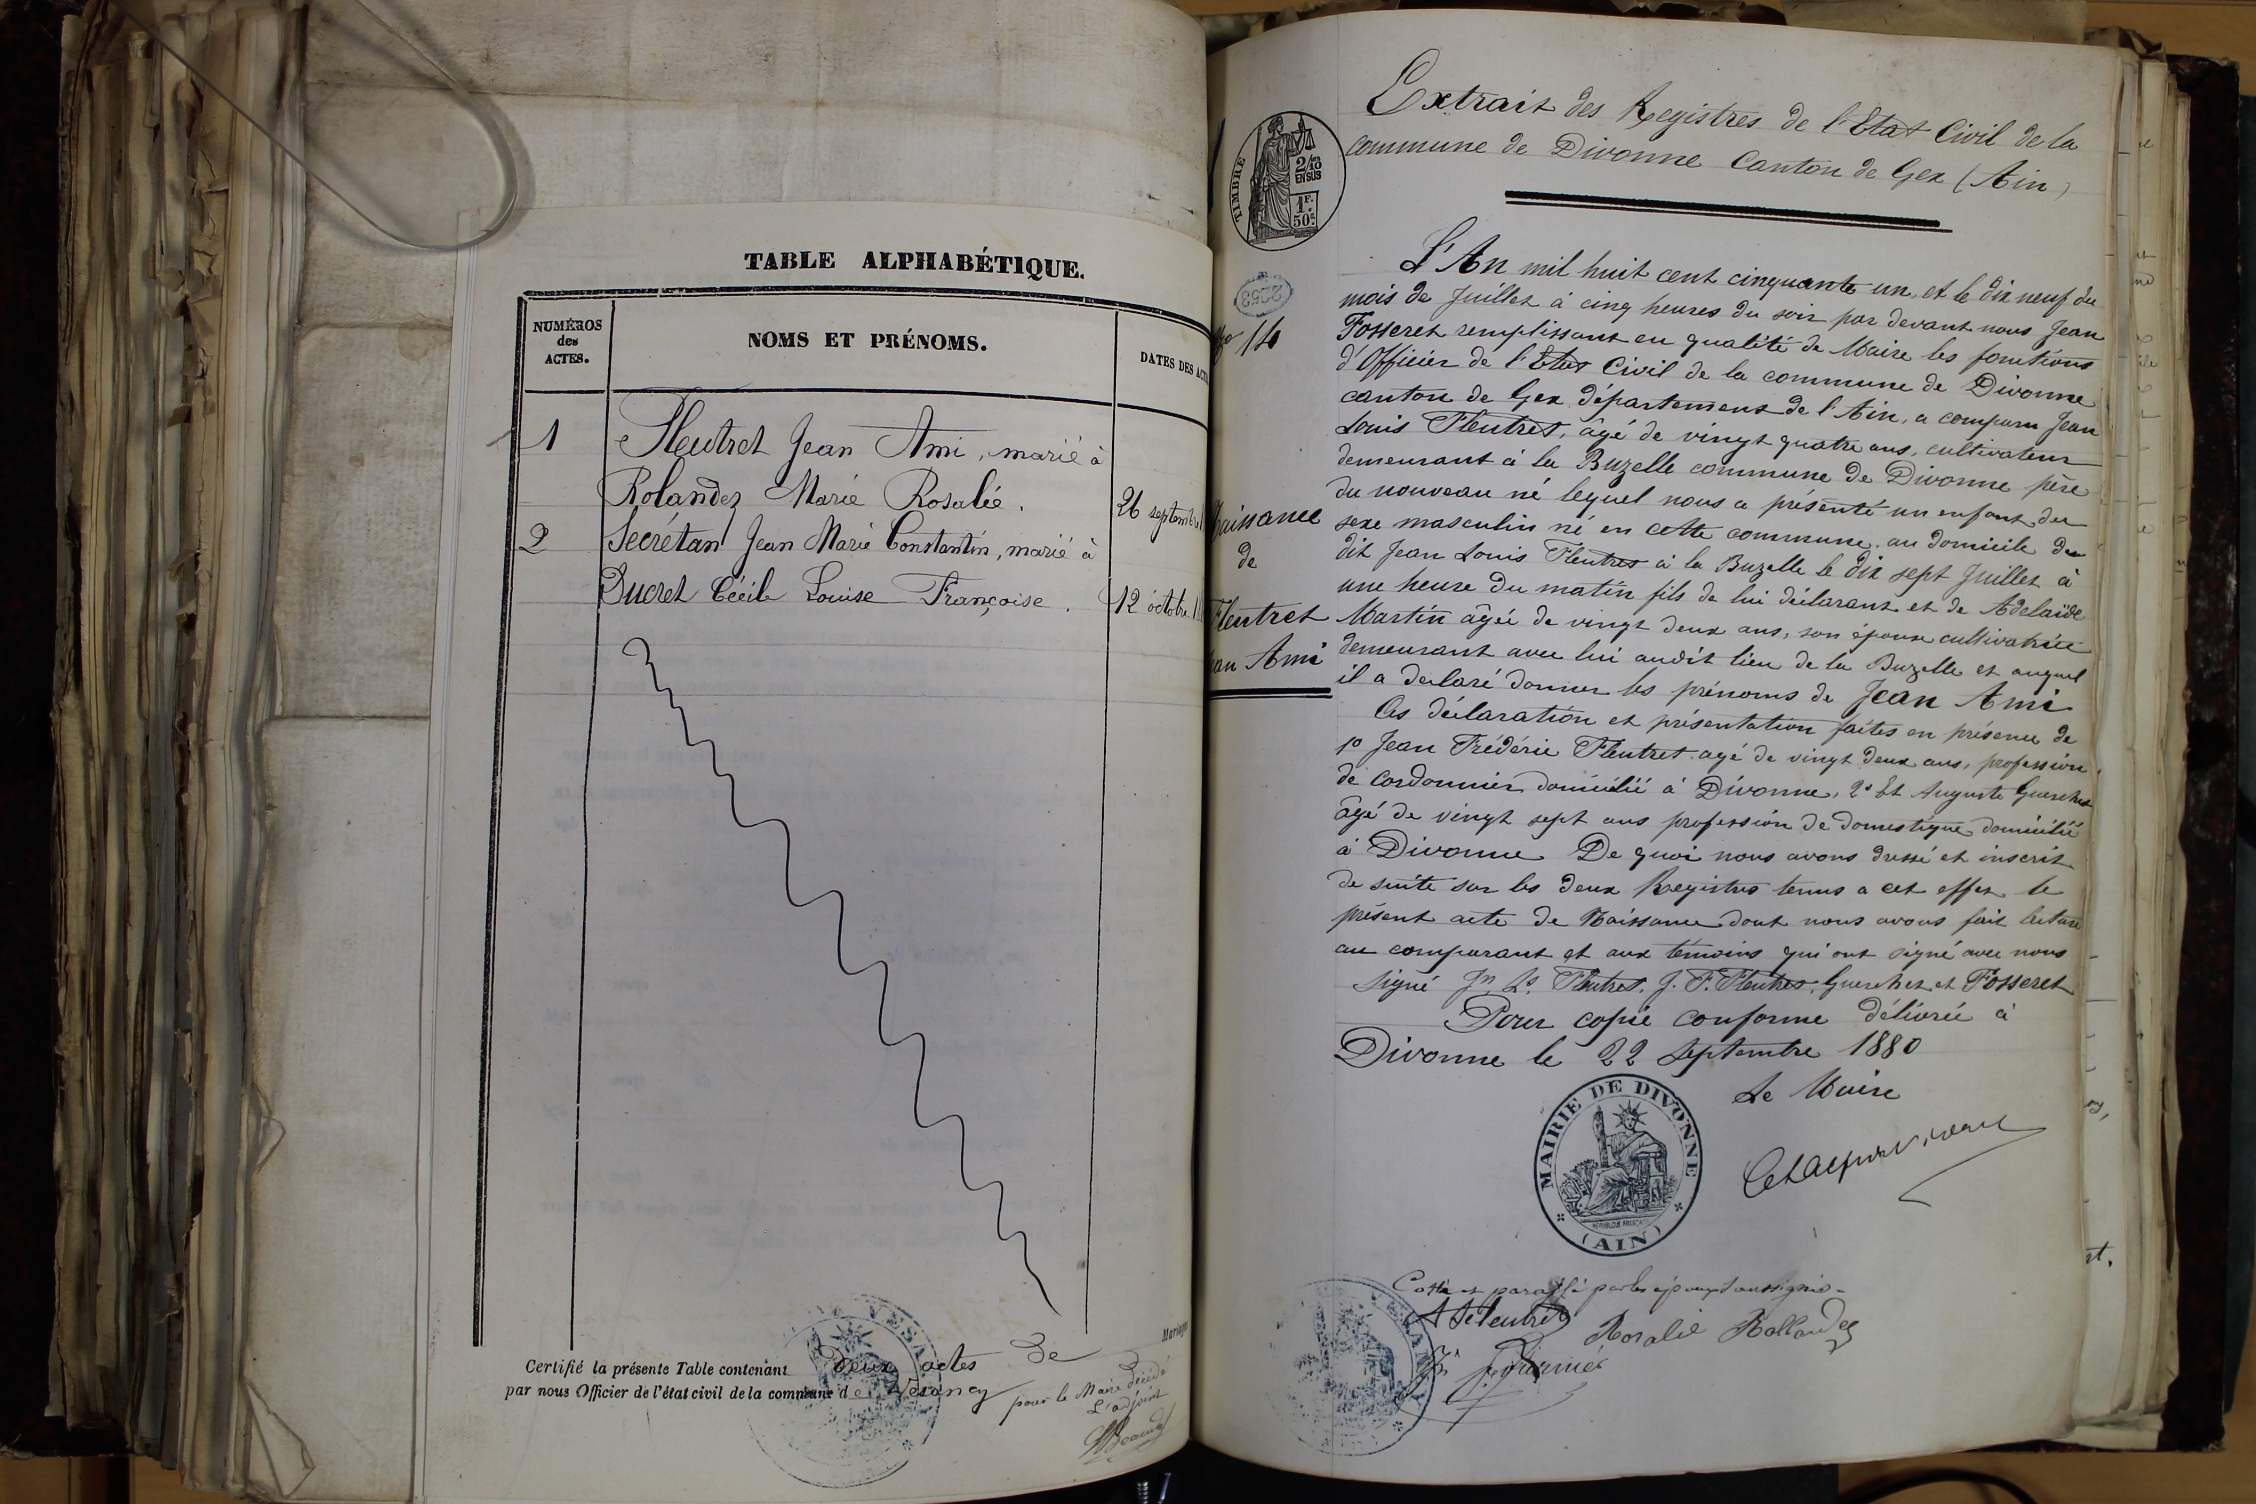 TABLE ALPHABÉTIQUE.
NUMÉROS
des
ACTES.
NOMS ET PRÉNOMS.
DATES DES
1
Fleutret Jean Ami, marié à
Rolandez Marie Rosalie.
26 septembre
2
Secrétan Jean Marie Constantin, marié à
Ducret Cécile Louise Françoise.
12 octobre
Certifié la présente Table contenant deux actes de
par nous Officier de l'état civil de la commune de Vesancy
pour le Maire décédé
L'adjoint
Extrait des Registres de l'Etat Civil de la
commune de Divonne Canton de Gex (Ain)
TIMBRE
2/10
EN SUS
1F.
50c.
2263
No 14
Naissance
de
Fleutret
Jean Ami
L'An mil huit cent cinquante un, et le dix neuf du
mois de Juillet à cinq heures du soir par devant nous Jean
Fosseret remplissant en qualité de Maire les fonctions
d'Officier de l'Etat Civil de la commune de Divonne
canton de Gex département de l'Ain, a comparu Jean
Louis Fleutret, âgé de vingt quatre ans, cultivateur
demeurant à la Buzelle commune de Divonne père
du nouveau né lequel nous a présenté un enfant du
sexe masculin né en cette commune au domicile du
dit Jean Louis Fleutret à la Buzelle le dix sept Juillet à
une heure du matin fils de lui déclarant et de Adelaïde
Martin âgée de vingt deux ans, son épouse cultivatrice
demeurant avec lui audit lieu de la Buzelle et auquel
il a déclaré donner les prénoms de Jean Ami
Ces déclaration et présentation faites en présence de
1o Jean Frédéric Fleutret agé de vingt deux ans, profession
de cordonnier domicilié à Divonne, 2o Et Auguste Guerchet
âgé de vingt sept ans profession de domestique domicilié
à Divonne De quoi nous avons dressé et inscrit
de suite sur les deux Registres tenus a cet effet le
présent acte de Naissance dont nous avons fait lecture
au comparant et aux témoins qui ont signé avec nous
signé Jn Ls Fleutret. J. F. Fleutret. Guerchet et Fosseret
Pour copie conforme délivrée à
Divonne le 22 Septembre 1880
Le Maire
MAIRIE DE DIVONNE
RÉPUBLIQUE FRANÇAISE
(AIN)
Coté et paraffé par les époux soussignés
Rosalie Rollandez